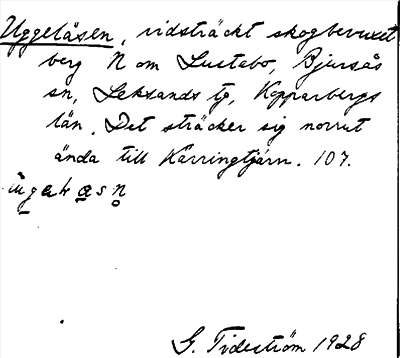 Uggelåsen, vidsträckt skogbevuxet
berg N om Lustebo, Bjursås
sn, Leksands tg, Kopparbergs
län. Det sträcker sig norrut
ända till Kärringtjärn. 107.
G. Tideström 1928